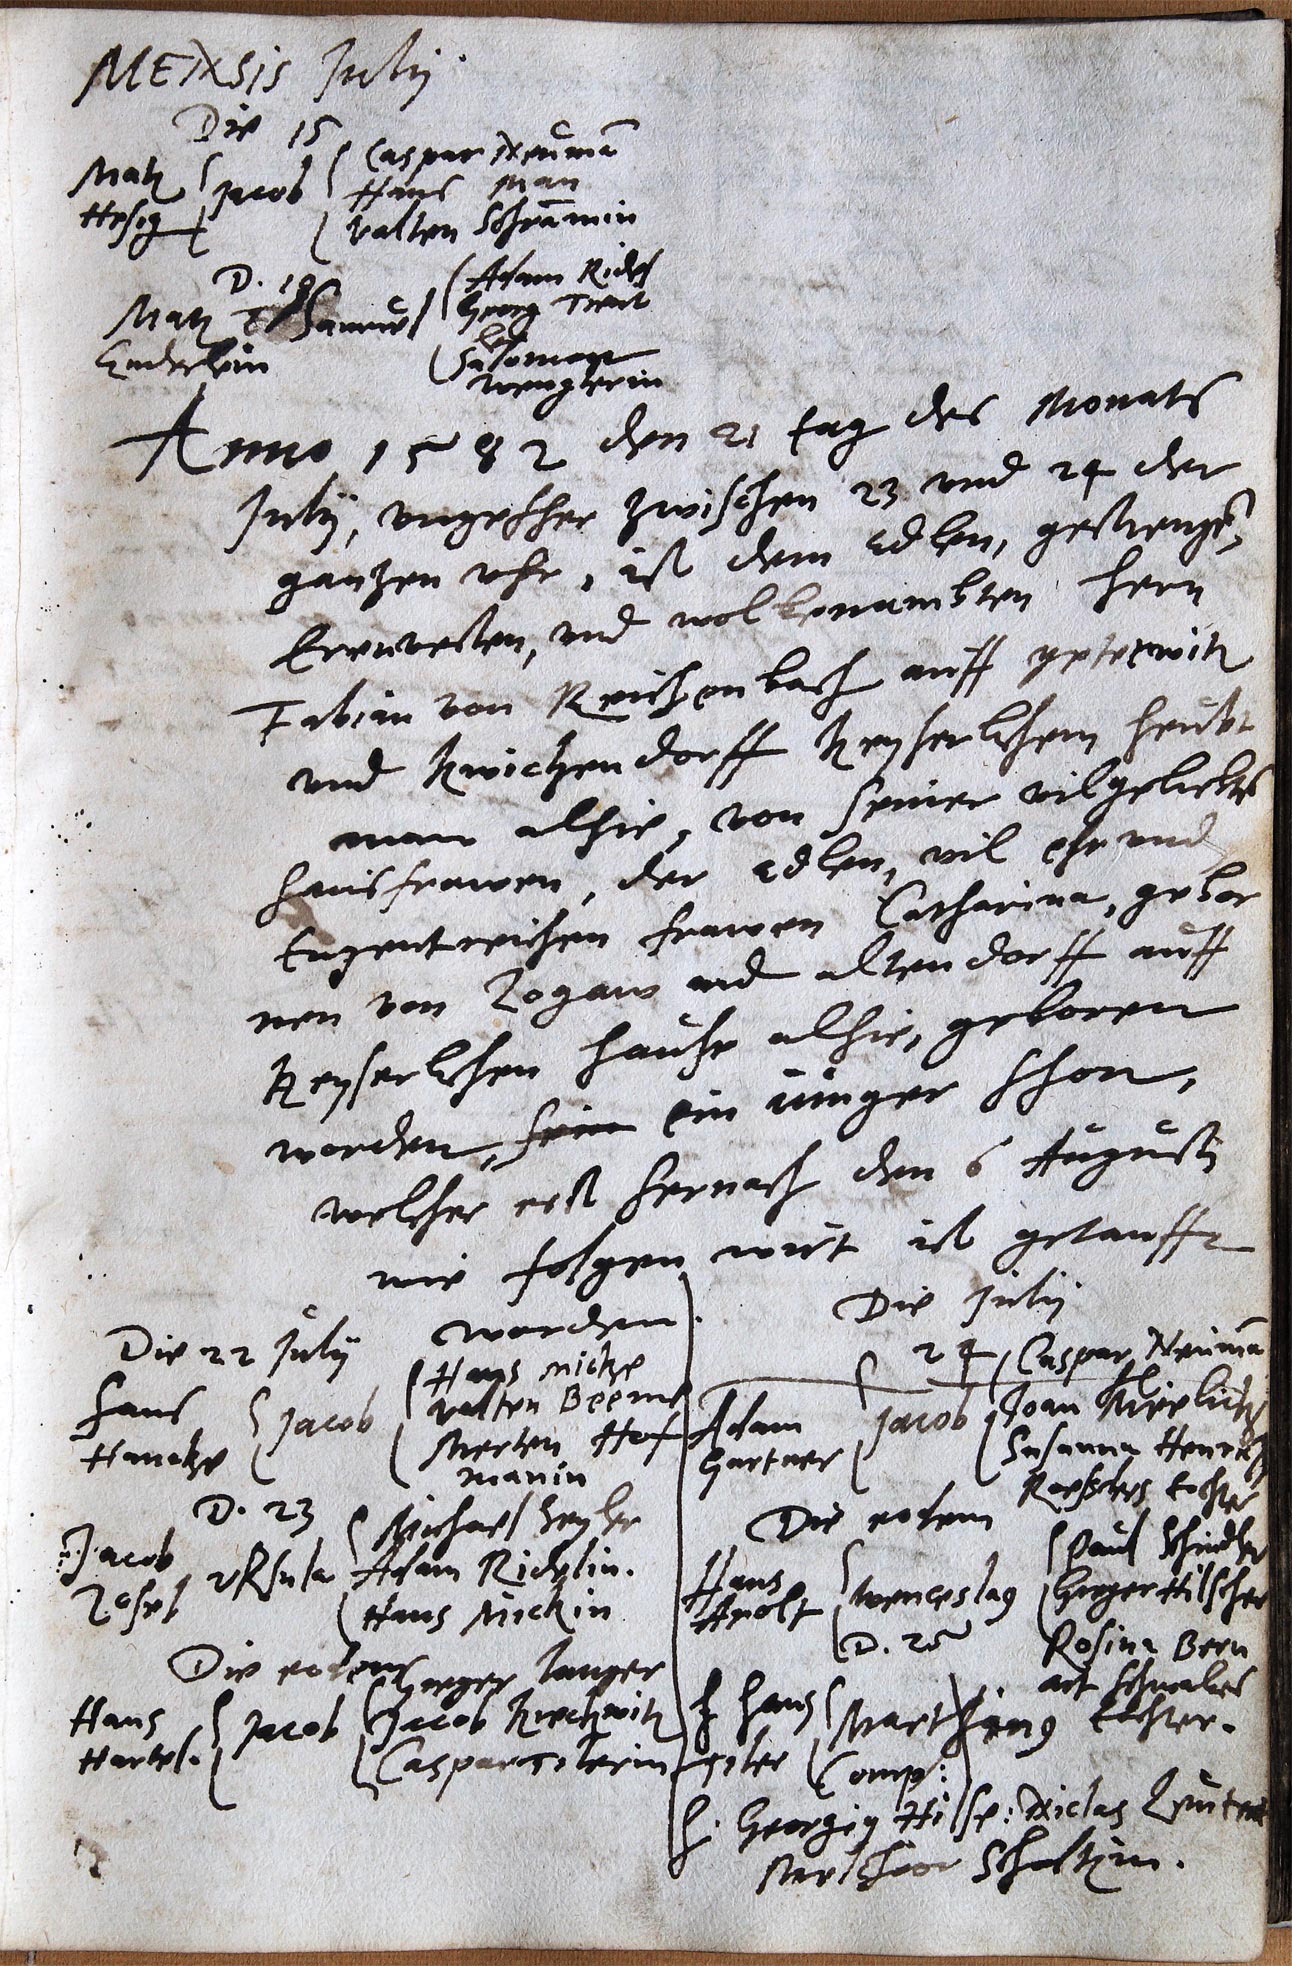 MENSIS Julij
Die 15
Matz Jacob Caspar Neumā
Hesig Hans Man
Valten Schrāmin
D. 18
Matz Samuel Adam Ridel
Enderlein Georg Treut
Salomon
Wenglerin
Anno 1582 den 21 tag des Monats
Julij, ungefher zwischen 23 und 24 der
gantzen uhr, ist dem Edlen, gestrengē,
Erenvesten, und wolbenambten hern
Fabian von Reichenbach auff peterwitz
und Kwickendorff Keyserlichem heubt
man alhie, von seiner vilgeliebtē
hausfrawen, der Edlen, vil ehr und
tugentreichen frawen Catharina, gebor
nen von Logaw und altendorff auff
Keyserlichen hause alhie, geboren
worden, sein ein iunger Shon,
welcher erst hernach den 6 Augusti
wie folgen wirt ist getaufft
worden.
Die 22 Julij
Hans Jacob Hans Nickse
Hanckge Valten Beem
Merten Hof
manin
D. 23
Jacob Ursula Michael Seyler
Adam Ridelin.
Hans Nickin
Die eodem
Greger Langer
Hans Jacob Jacob Kreckwitz
Hartel. Caspar Tilerin
Die Julij
24
Adam Jacob Caspar Neumā
Gartner Joan
Susanna Henrich
Roeslers tochter
Die eodem
Hans Wenceslaq Paul Schindler
Arnolt Greger Hilscher
Rosina Bern
art Schwalbes
tochter.
D. 25
H Hans Martinq
Tiler Comp:
H. Georgiq Hilse: Niclas
Melchior Scholtzin.